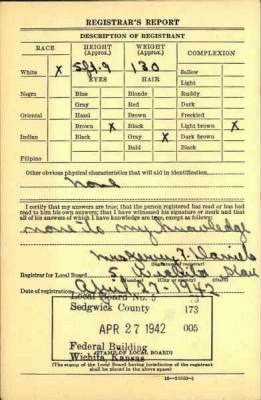 REGISTRAR'S REPORT
DESCRIPTION OF REGISTRANT
RACE HEIGHT (Approx.) WEIGHT (Approx.) COMPLEXION
White X 5ft-9 130 Sallow
EYES HAIR Light
Negro Blue Blonde Ruddy
Gray Red Dark
Oriental Hazel Brown Freckled
Brown X Black Light brown X
Indian Black Gray X Dark brown
Bald Black
Filipino
Other obvious physical characteristics that will aid in identification
None
I certify that my answers are true; that the person registered has read or has had
read to him his own answers; that I have witnessed his signature or mark and that
all of his answers of which I have knowledge are true, except as follows:
none to my knowledge
Mrs T. Daniels
(Signature of registrar)
Registrar for Local Board 5 Wichita
(Number) (City or county) (State)
Date of registration April 27-1942
Local Board No. 5 73
Sedgwick County 173
APR 27 1942 005
Federal Building
Wichita, Kansas
(STAMP OF LOCAL BOARD)
(The stamp of the Local Board having jurisdiction of the registrant
shall be placed in the above space)